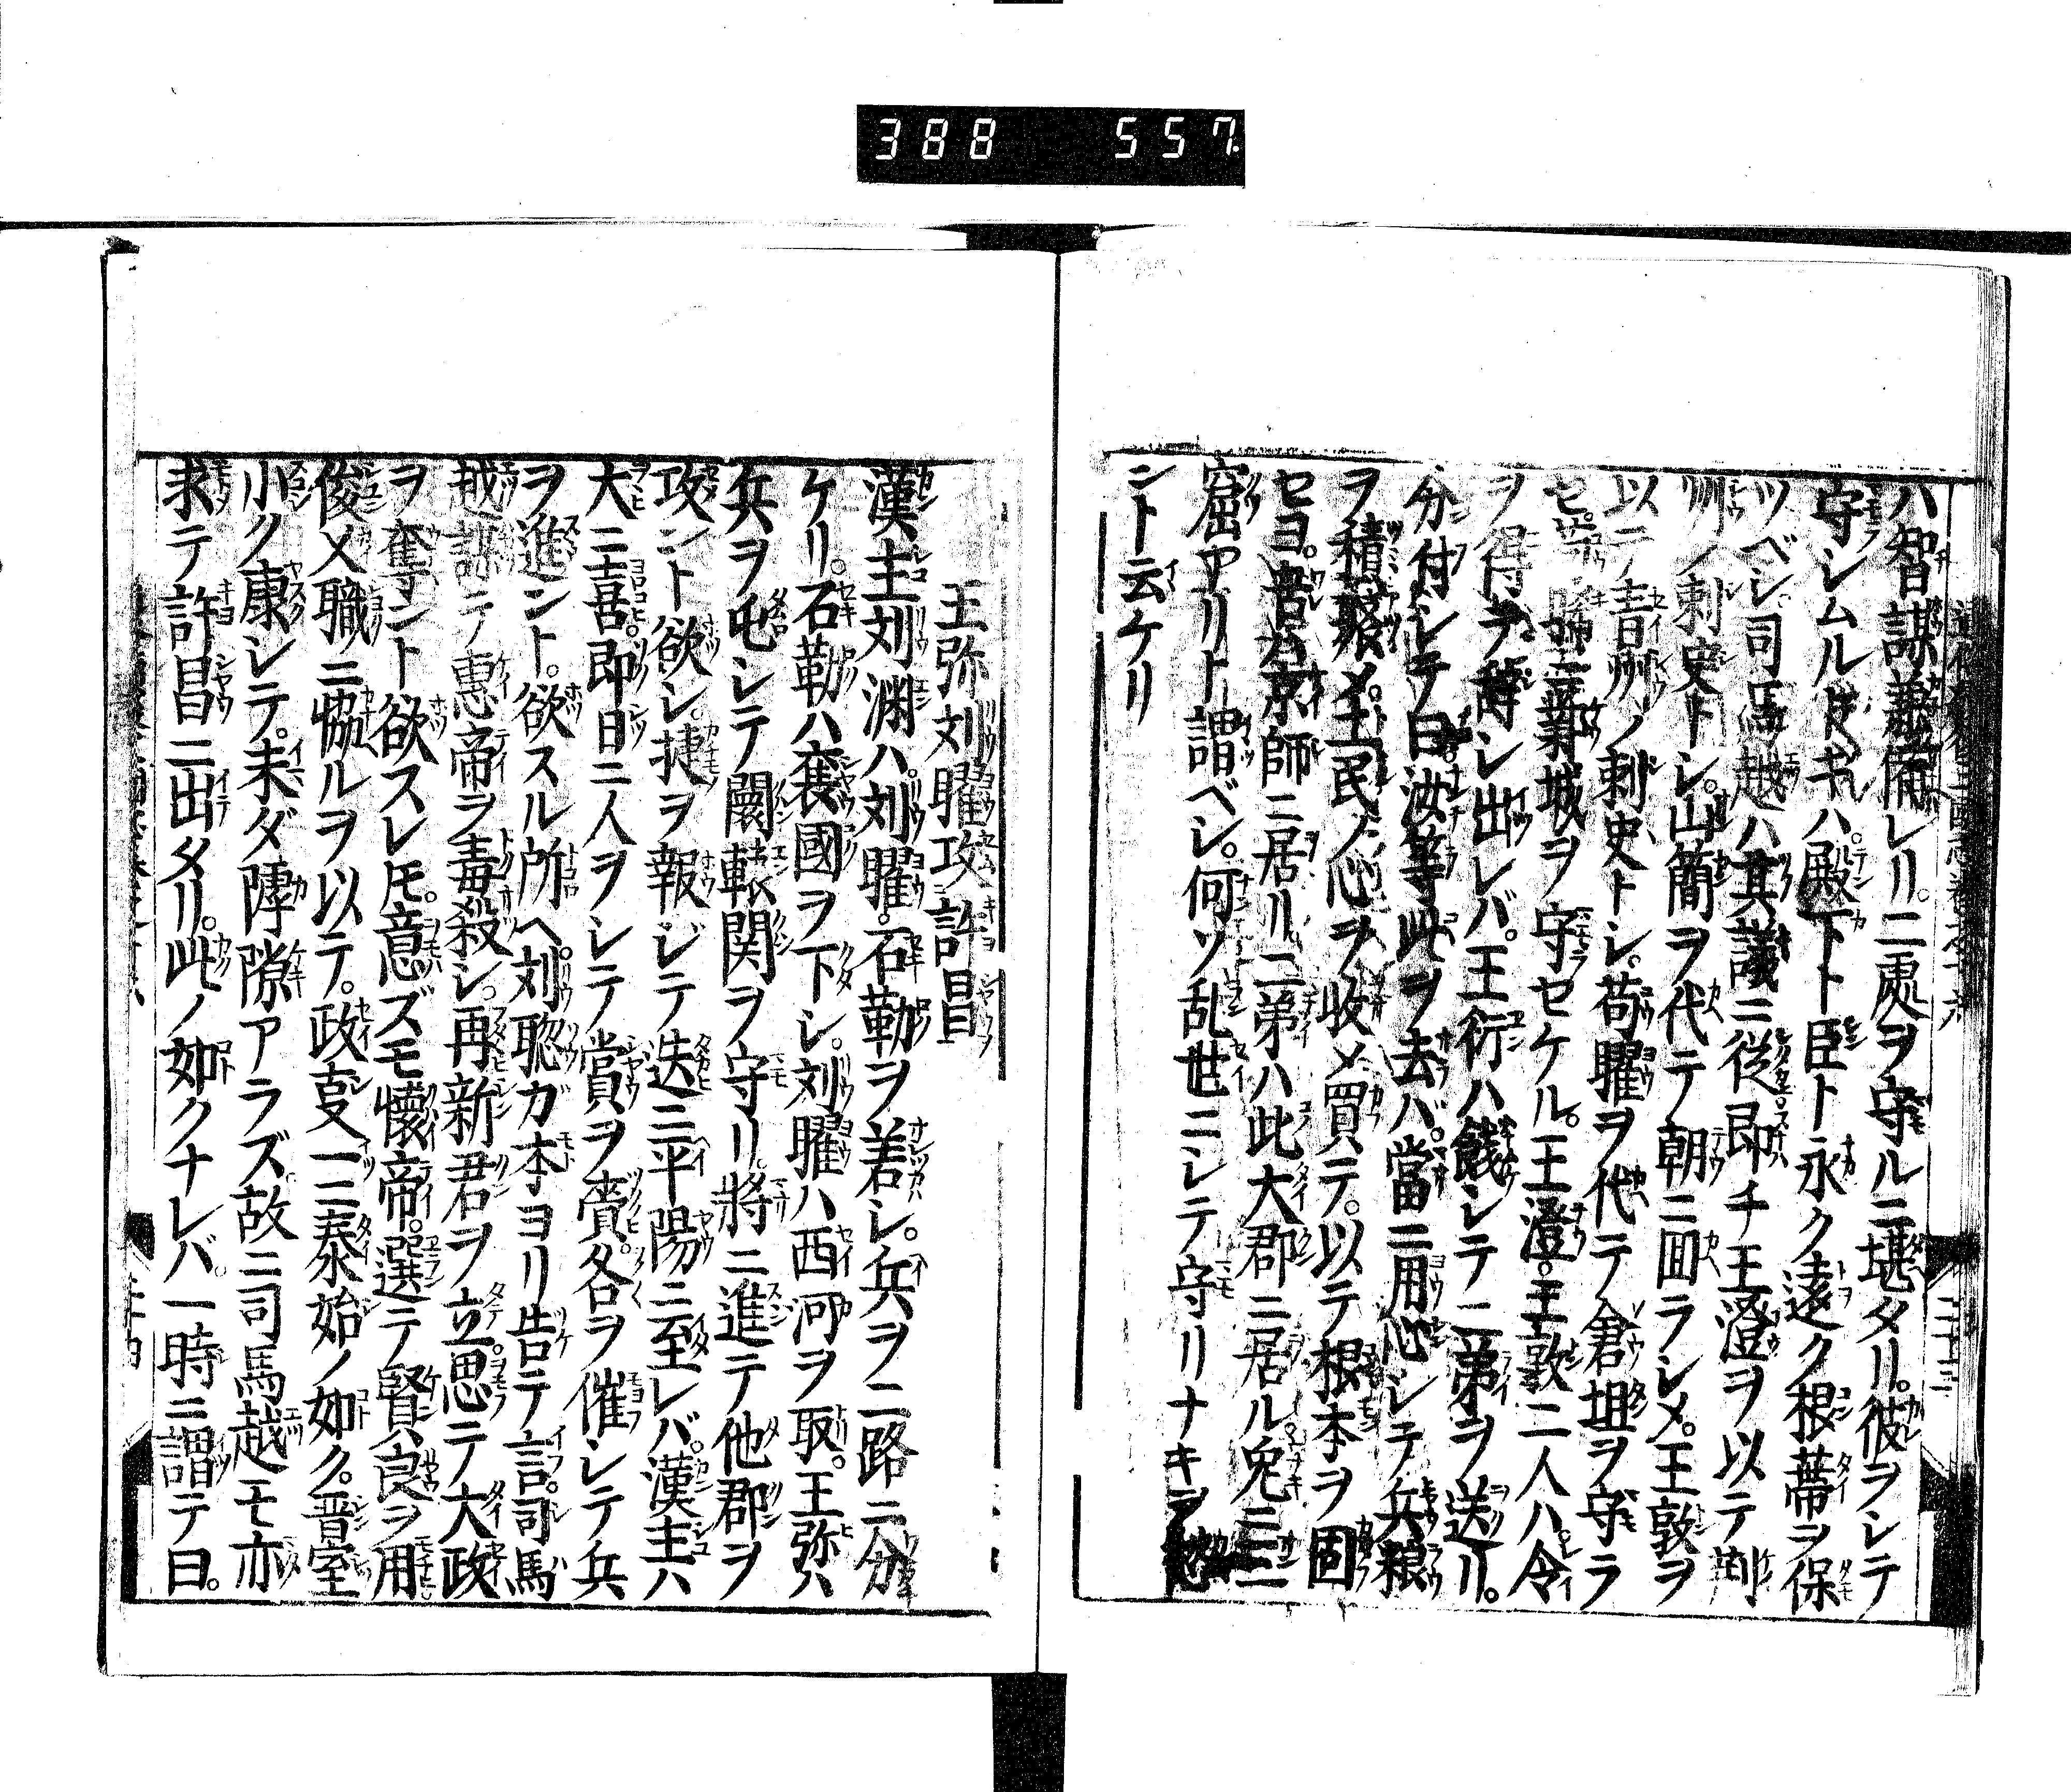 388 557
ハ智謀兼備レリ。二處ヲ守ルニ堪タリ。彼ヲシテ
守シムル寸ハ。殿下ト臣ト永ク遠ク根蔕ヲ保
ツベシ司馬越ハ其議ニ從即チ王澄ヲ以テ荆
州ノ刺史トシ。山簡ヲ代テ朝ニ囬ラシメ。王敦ヲ
以テ青州ノ刺史トシ。荀曜ヲ代テ倉垣ヲ守ラ
城ヲ守セケル。王澄。王敦二人ハ令
ヲ得テ辞シ出レバ。王衍ハ餞シテ二弟ヲ送リ。
分付シテ曰。汝等此ヲ去バ。當ニ用心シテ兵粮
ヲ積蓄メ。士民ノ心ヲ收メ買テ。以テ根本ヲ固
セヨ。吾ハ京師ニ居リ。二弟ハ此大郡ニ居ル。兔ニ三
窟アリト謂ベシ。何ソ乱世ニシテ守リナキヲ愁
ント云ケリ
王弥刘曜攻許昌
漢主刘渊ハ。刘曜。石勒ヲ差シ。兵ヲ二路ニ分
ケリ。石勒ハ襄國ヲ下シ。刘曜ハ西河ヲ取。王弥ハ
兵ヲ屯シテ轘轅関ヲ守リ。將ニ進テ他郡ヲ
攻ント欲シ。捷ヲ報ジテ迭ニ平陽ニ至レバ。漢主ハ
大ニ喜。即日ニ人ヲシテ賞ヲ賚。各ヲ催シテ兵
ヲ進ント。欲スル所ヘ。刘聡ガ本ヨリ告テ言。司馬
越謀テ惠帝ヲ毒殺シ。再新君ヲ立。思テ大政
ヲ奪ント欲スレ𪜈。意ズモ懷帝。選テ賢良ヲ用
俊メ職ニ恊ルヲ以テ。政叓一ニ泰始ノ如ク。晋室
小ク康シテ。未ダ𨻶隙アラズ。故ニ司馬越モ亦
求テ許昌ニ出タリ。此ノ如クナレバ。一時ニ謂テ曰。